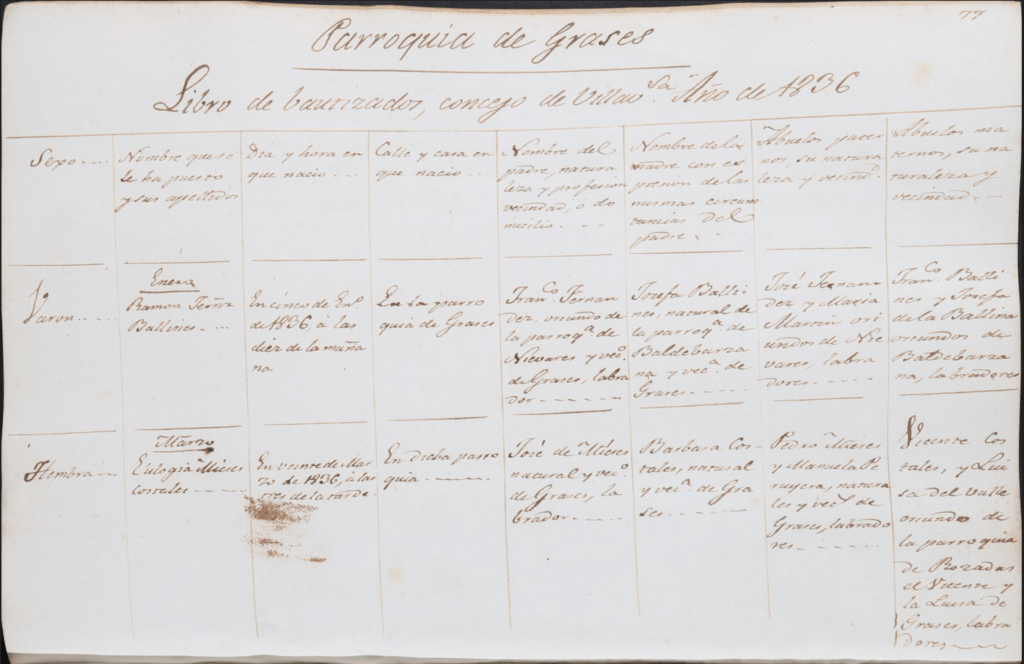 77
Parroquia de Grases
Libro de bautizados, concejo de Villav.sa Año de 1836
Sexo
Nombre que se
le ha puesto
y sus apellidos
Dia y hora en
que nacio
Calle y casa en
que nacio
Nombre del
padre, natura
leza y profesion
vecindad, o do
micilio
Nombre de la
madre con ex
presion de las
mismas circuns
tancias del
padre
Abuelos pater
nos, su natura
leza y vecind.d
Abuelos ma
ternos, su na
turaleza y
vecindad
Varon
Enero
Ramon Fernz
Ballines
En cinco de En.o
de 1836, á las
diez de la maña
na
En la parro
quia de Grases
Fran.co Fernan
dez, oriundo de
la parroq.a de
Nievares y vec.o
de Grases, labra
dor
Josefa Balli
nes, natural de
la parroq.a de
Baldebarza
na y vec.a de
Grases
José Fernan
dez y Maria
Martin ori
undos de Nie
vares, labra
dores
Fran.co Balli
nes y Josefa
de la Ballina
oriundos de
Baldebarza
na, labradores
Hembra
Marzo
Eulogia Mieres
Costales
En veinte de Mar
zo de 1836, a las
tres de la tarde
En Dicha parro
quia
José de Mieres
natural y vec.o
de Grases, la
brador
Barbara Cos
tales, natural
y vec.a de Gra
ses
Pedro Mieres
y Manuela Pe
ruyera, natura
les y vec.s de
Grases, labrado
res
Vicente Cos
tales, y Lui
sa del Valle
oriundo de
la parroquia
de Rozadas
el Vicente y
la Luisa de
Grases, labra
dores